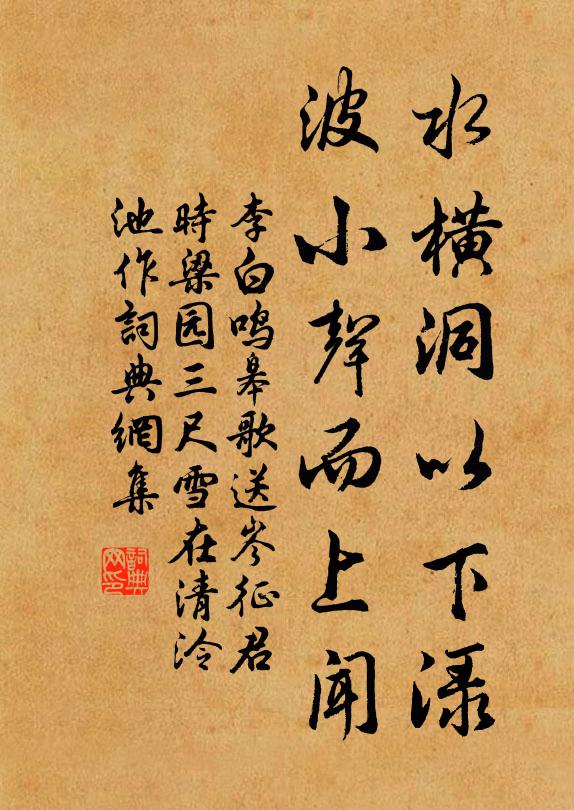 水橫洞以下淥
波小聲而上聞
李白鳴皋歌送岑征君
時梁园三尺雪在清泠
池作詞典網集
詞典
网印